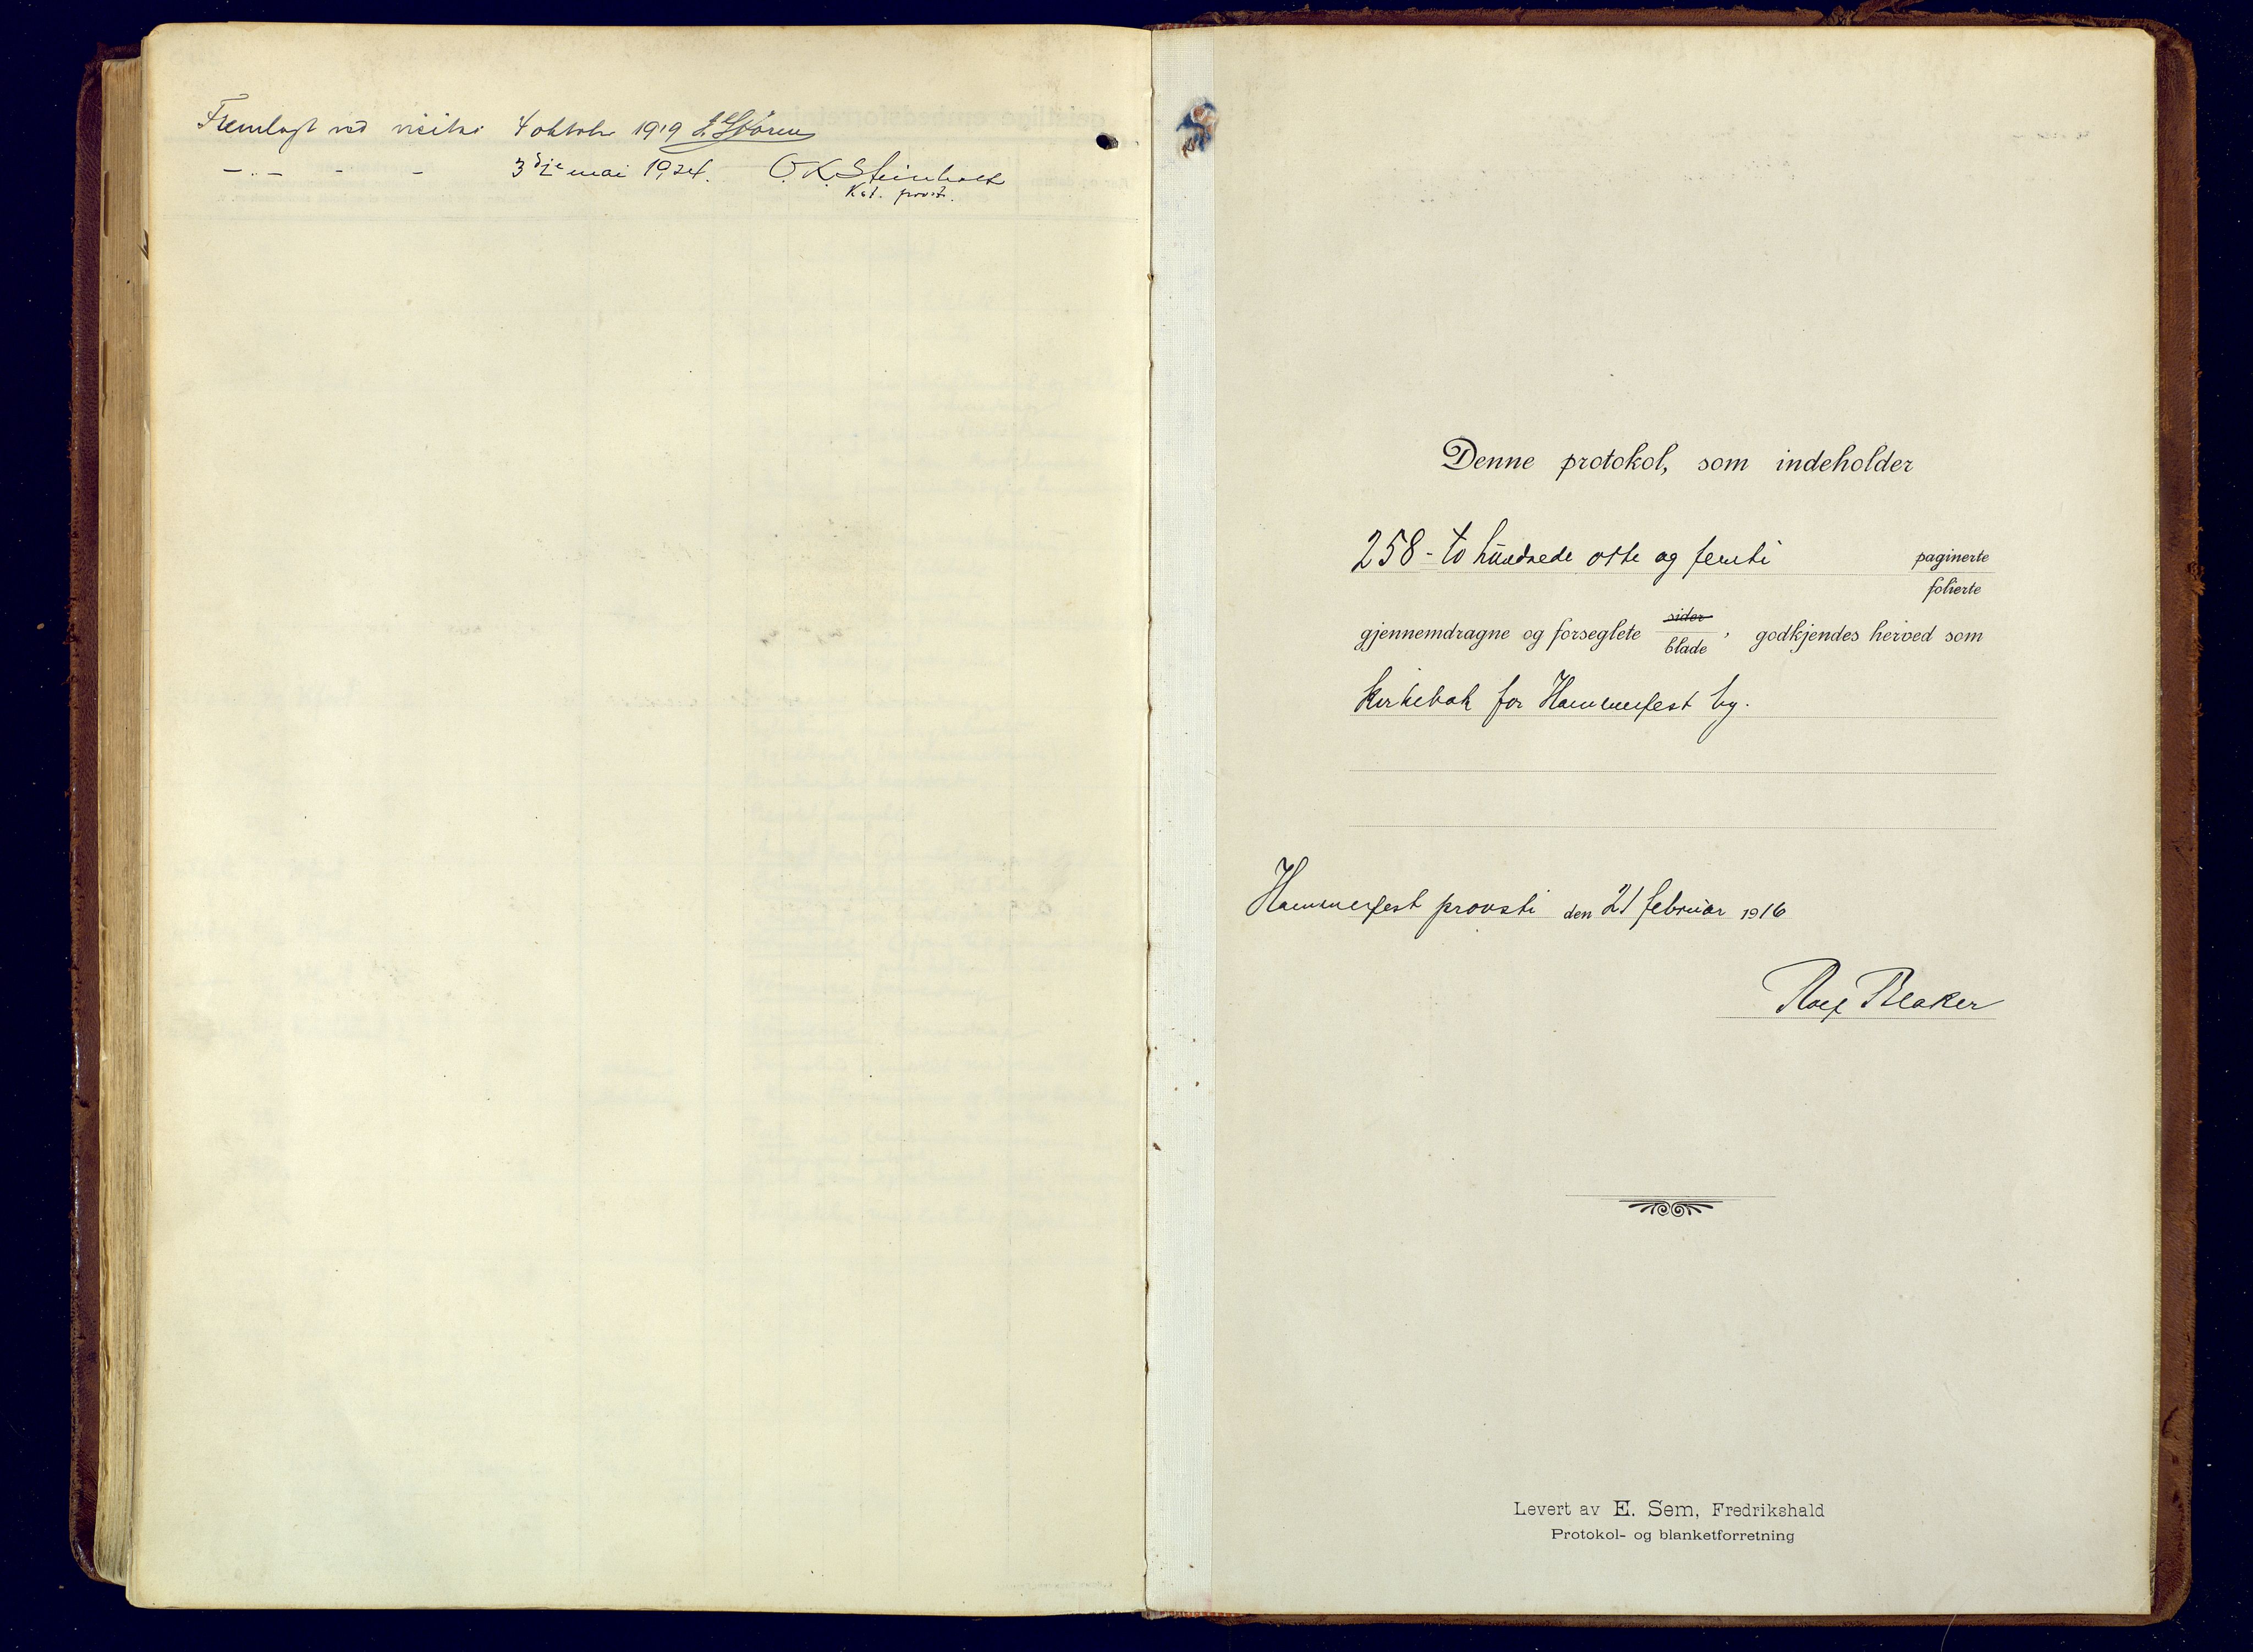 Fremlagt ved visitas 4 oktober 1919
-.- - - 3die mai 1924. O.K. Steinholt
Kst. prost.
Denne protokol, som indeholder
258 - to hundrede otte og femti paginerte
folierte
gjennemdragne og forseglete sider
blade, godkjendes herved som
kirkebok for Hammerfest by.
Hammerfest provsti den 21 februar 1916
Rolf Blaker
Levert av E. Sem, Fredrikshald
Protokol- og blanketforretning